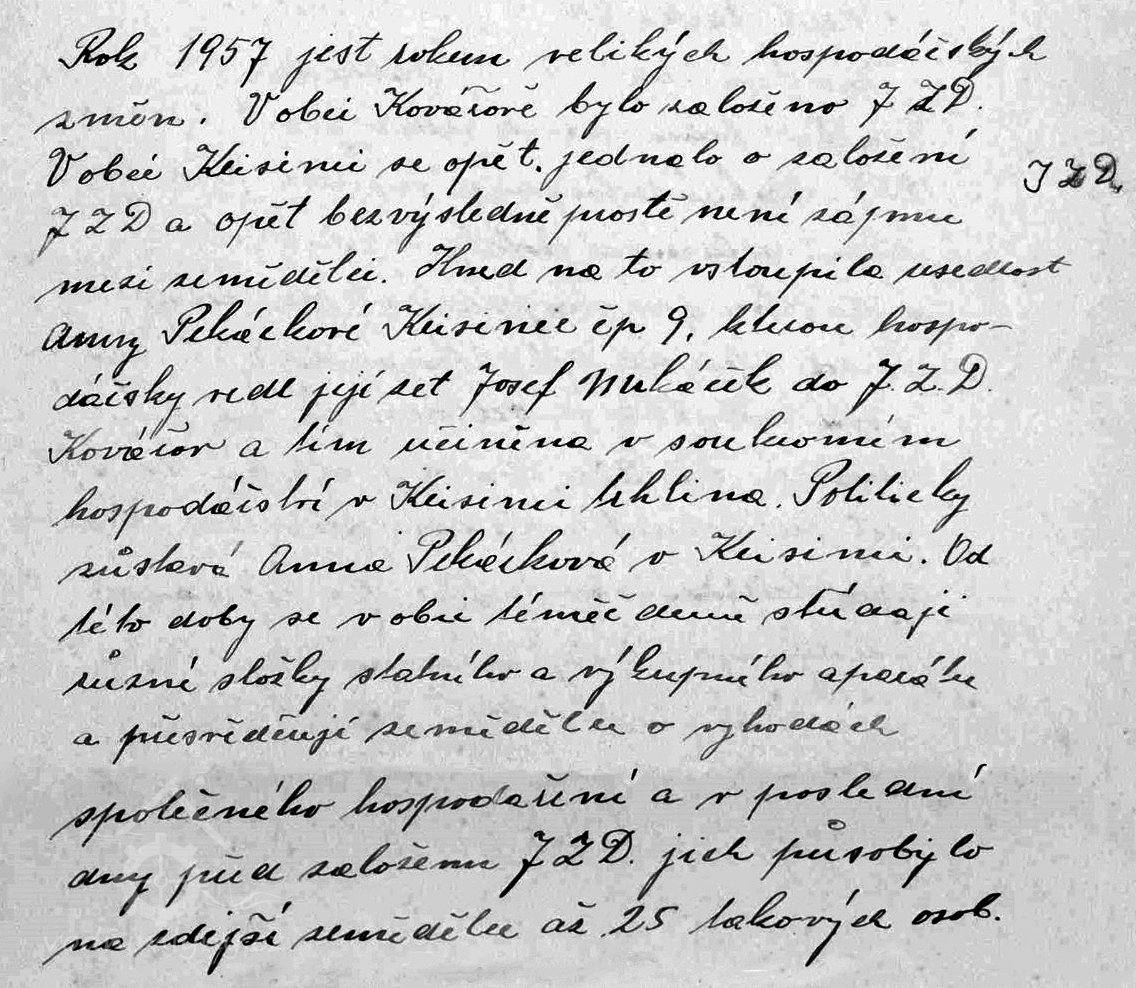 Rok 1957 jest rokem velikých hospodářských
změn. V obci Kovářově bylo založeno J Z D.
V obci Křisinci se opět jednalo o založení
J Z D.
J Z D a opět bezvýsledně prostě není zájmu
mezi zemědělci. Hned na to vstoupila usedlost
Anny Pekárkové Křisinec čp 9, kterou hospo-
dářsky vedl její zeť Josef do J. Z. D.
Kovářov a tím učiněna v soukromém
hospodářství v Křisinci trhlina. Politicky
zůstává Anna Pekárková v Křisinci. Od
této doby se v obci téměř denně střídají
různé složky statního a výkupného aparátu
a přesvědčují zemědělce o vyhodách
společného hospodaření a v poslední
dny před založením J Z D. jich působylo
na zdejší zemědělce až 25 takových osob.